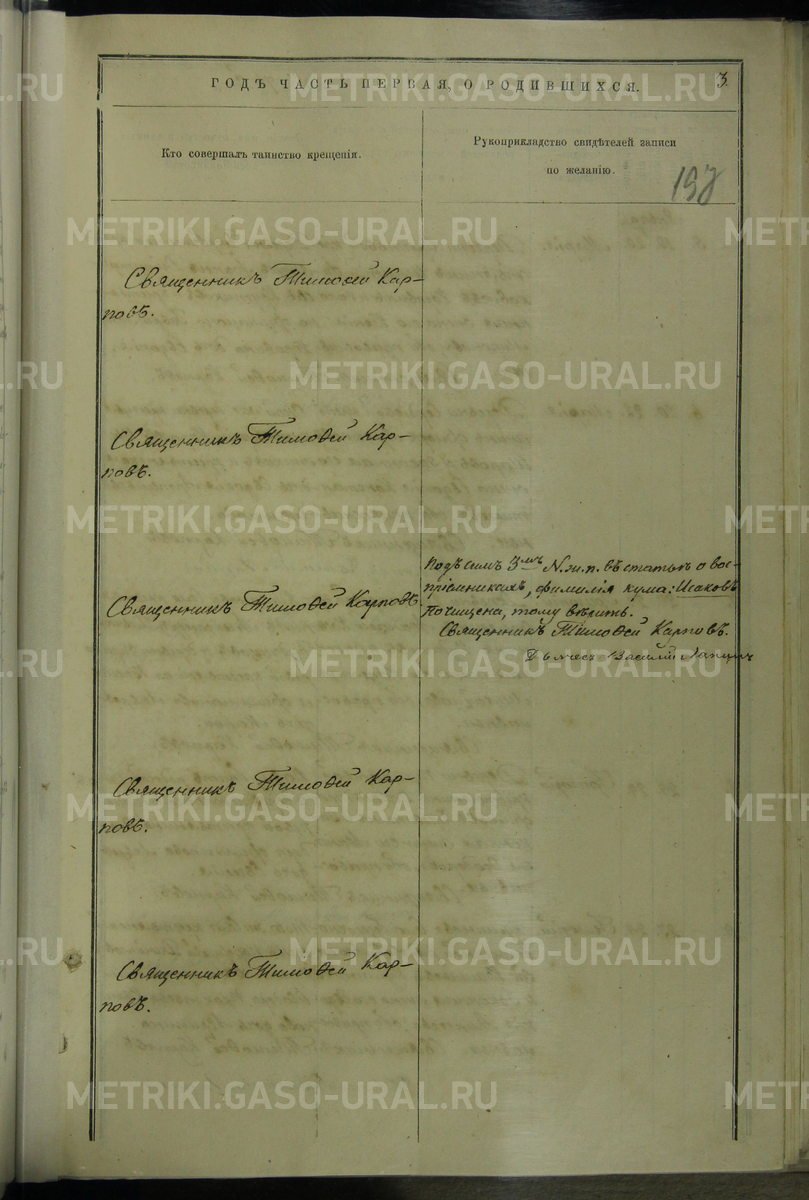 ГОДЪ ЧАСТЬ ПЕРВАЯ, О РОДИВШИХСЯ.
3.
Кто совершалъ таинство крещенія.
Рукоприкладство свидѣтелей записи
по желанію.
198
Священникъ Тимоѳей Кар-
повъ.
Священникъ Тимоѳей Кар-
повъ.
Священникъ Тимоѳей Карповъ
Подъ симъ 3мъ N. м. п. въ статьѣ о вос-
пріемникахъ, фамилія кума: Исаковъ
почищена, тому вѣрить.
Священникъ Тимоѳей Карповъ.
Василій
Священникъ Тимоѳей Кар-
повъ.
Священникъ Тимоѳей Кар-
повъ.
METRIKI.GASO-URAL.RU